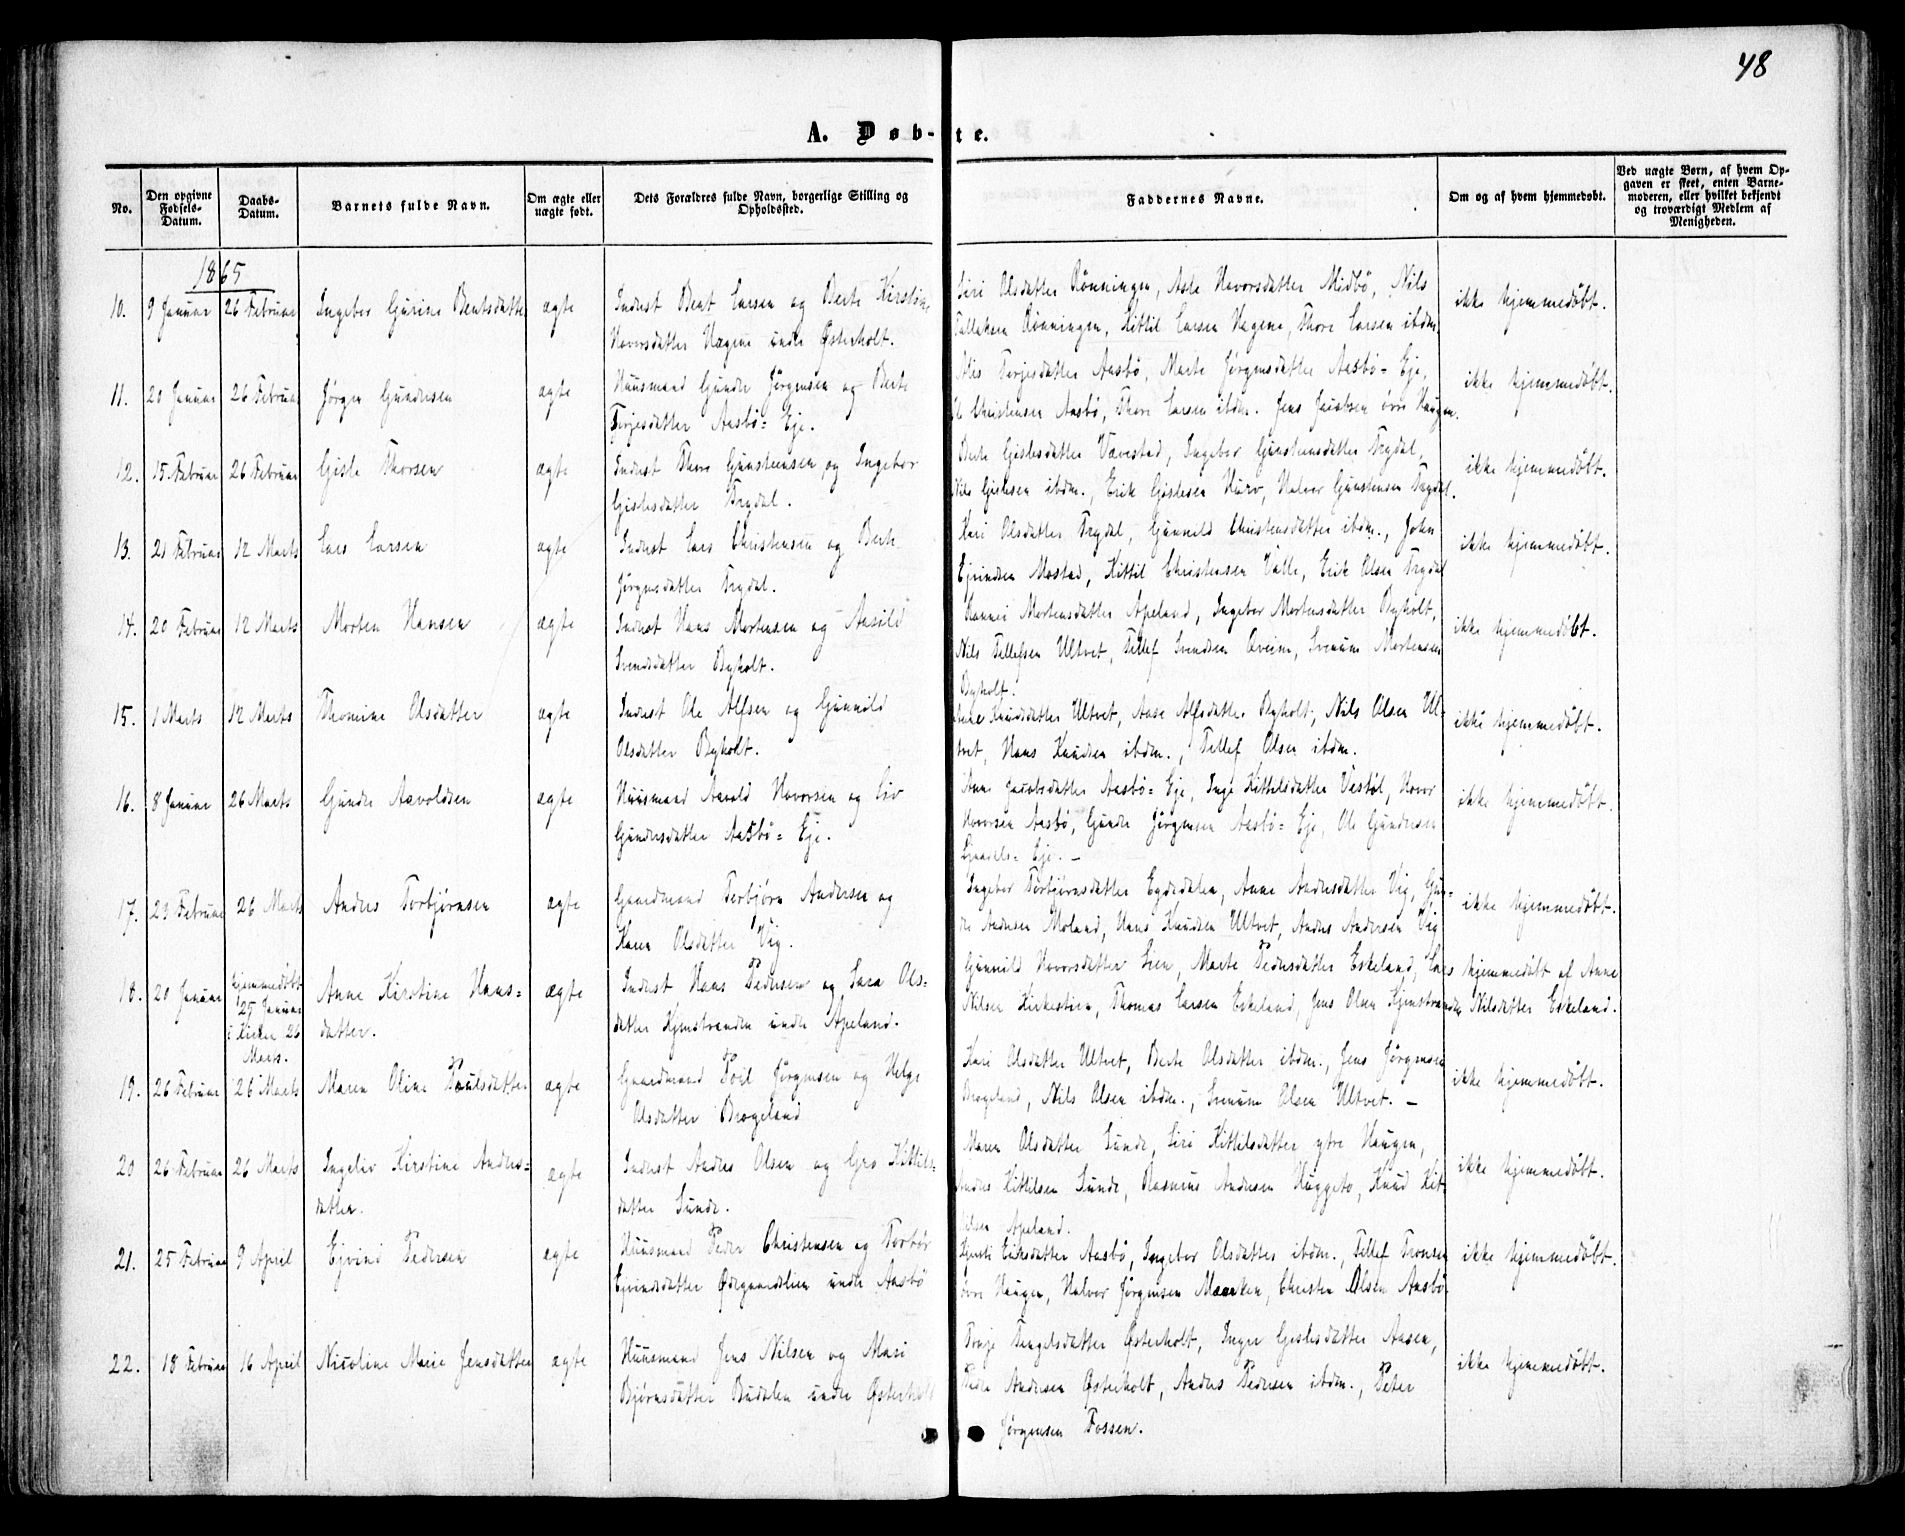 48
A. Døb-te.
No.
Den opgivne Fødsels-Datum.
Daabs-Datum.
Barnets fulde Navn.
Om ægte eller uægte født.
Dets Forældres fulde Navn, borgerlige Stilling og Opholdssted.
Faddernes Navne.
Om og af hvem hjemmedøbt.
Ved uægte Børn, af hvem Opgaven er skeet, enten Barnemoderen, eller hvilket bekjendt og troværdigt Medlem af Menigheden.
1865
10. 9 Januar 26 Februar Ingebor Gurine Bentsdatter ægte
Inderst Bent Larsen og Berte Kirstine
Haversdatter Hagene under Østerholt.
Siri Olsdatter Rønningen, Asle Haversdatter Midbø, Nils
Tallaksen Rønningen, Kittil Larsen Hagene, Thore Larsen ibdm.
ikke hjemmedøbt.
11. 20 Januar 26 Februar Jørgen Gundersen ægte
Huusmand Gunder Jørgensen og Berte
Terjesdatter Aasbø-Eje.
Terjesdatter Aasbø, Marte Jørgensdatter Aasbø-Eje,
Ole Christensen Aasbø, Thore Larsen ibdm. Jens Jacobsen øvre Haugen.
ikke hjemmedøbt.
12. 15 Februar 26 Februar Gisle Thorsen ægte
Inderst Thore Gunsteensen og Ingebor
Gislesdatter Trydal.
Berte Gislesdatter Vævestad, Ingebor Gunsteensdatter Trydal,
Nils Gislesen ibdm., Erik Gislesen Hurv, Halvor Gunsteensen Trydal.
ikke hjemmedøbt.
13. 21 Februar 12 Marts Lars Larsen ægte
Inderst Lars Christensen og Berte
Jørgensdatter Trydal.
Kari Olsdatter Trydal, Gunnild Christensdatter ibdm., John
Ejvindsen Mostad, Kittil Christensen Valle, Erik Olsen Trydal
ikke hjemmedøbt.
14. 20 Februar 12 Marts Morten Hansen ægte
Inderst Hans Mortensen og Aasild
Svendsdatter Byholt.
Mortensdatter Apeland, Ingebor Mortensdatter Byholt,
Nils Tellefsen Ultvet, Tellef Svendsen Qveim, Svenum Mortensen
Byholt.
ikke hjemmedøbt.
15. 1 Marts 12 Marts Thomine Olsdatter ægte
Inderst Ole Alfsen og Gunnild
Olsdatter Byholt.
Anne Knudsdatter Ultvet, Aase Alfsdatter Byholt, Nils Olsen Ul-
tvet, Hans Knudsen ibdm., Tellef Olsen ibdm.
ikke hjemmedøbt.
16. 8 Januar 26 Marts Gunder Aavoldsen ægte
Huusmand Aavold Havorsen og Liv
Gundersdatter Aasbø-Eje.
Ane Jacobsdatter Aasbø-Eje, Inge Kittilsdatter Vestøl, Havor
Havorsen Aasbø, Gunder Jørgensen Aasbø-Eje, Ole Gundersen
Eje. –
ikke hjemmedøbt.
17. 23 Februar 26 Marts Anders Torbjørnsen ægte
Gaardmand Torbjørn Andersen og
Karen Olsdatter Vig.
Ingebor Torbjørnsdatter Egdedalen, Anne Andersdatter Vig, Gun-
der Andersen Moland, Hans Knudsen Ultvet, Anders Andersen Vig
ikke hjemmedøbt.
18. 20 Januar
hjemmedøbt
25 Januar
i Kirken 26
Marts.
Anne Kirstine Hans-
datter.
ægte
Inderst Hans Pedersen og Sara Ols-
datter Hjemstranden under Apeland.
Gunnild Havorsdatter Lien, Marte Pedersdatter Eskeland, Lars
Nilsen Kirkestien, Thomas Larsen Eskeland, Jens Olsen Hjemstranden
hjemmedøbt af Anne
Nilsdatter Eskeland.
19. 26 Februar 26 Marts Maren Oline Paulsdatter ægte
Gaardmand Poul Jørgensen og Helge
Olsdatter Brogeland
Kari Olsdatter Ultvet, Berte Olsdatter ibdm., Jens Jørgensen
Brogeland, Nils Olsen ibdm., Svenum Olsen Ultvet. –
ikke hjemmedøbt.
20 26 Februar 26 Marts Ingeliv Kirstine Anders-
datter.
ægte
Inderst Anders Olsen og Gro Kittils-
datter Sunde.
Maren Olsdatter Sunde, Siri Kittilsdatter ytre Haugen,
Anders Kittilsen Sunde, Rasmus Andersen Huggeto, Knud Kit-
tilsen Apeland.
ikke hjemmedøbt.
21. 25 Februar 9 April Ejvind Pedersen ægte
Huusmand Peder Christensen og Torbør
Ejvindsdatter Ødegaardslien under Aasbø
Kjersti Eriksdatter Aasbø, Ingebor Olsdatter ibdm., Tellef Tronsen
øvre Haugen, Halvor Jørgensen Maarken, Christen Olsen Aasbø
ikke hjemmedøbt.
22. 18 Februar 16 April Nicoline Marie Jensdatter ægte
Huusmand Jens Nilsen og Mari
Bjørnsdatter Budalen under Østerholt
Tengelsdatter Østerholt, Inger Gislesdatter Aasen,
Peder Andersen Østerholt, Anders Pedersen ibdm., Peter
Jørgensen Fossen.
ikke hjemmedøbt.